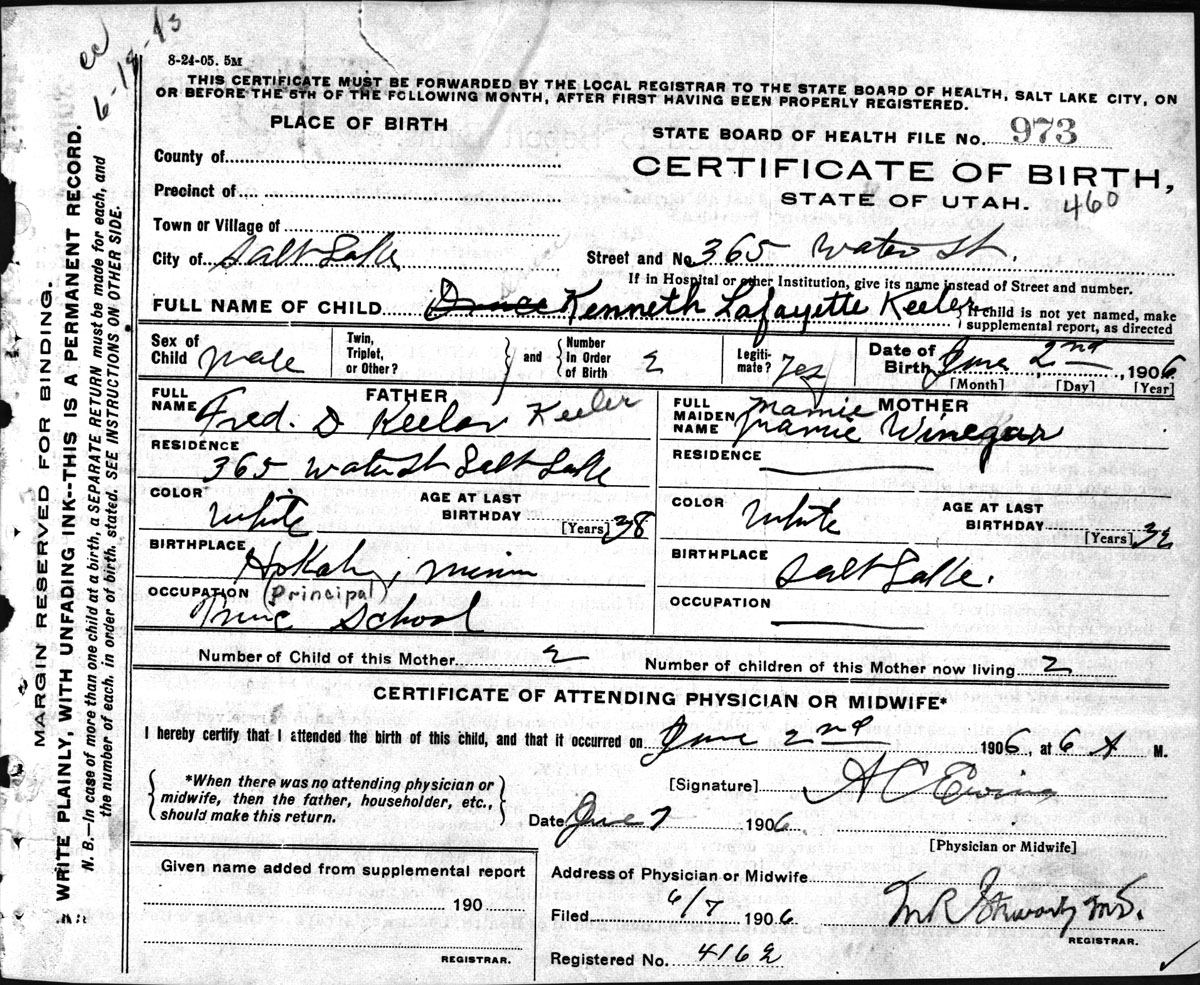 8-24-05. 5M
THIS CERTIFICATE MUST BE FORWARDED BY THE LOCAL REGISTRAR TO THE STATE BOARD OF HEALTH, SALT LAKE CITY, ON
OR BEFORE THE 5TH OF THE FOLLOWING MONTH, AFTER FIRST HAVING BEEN PROPERLY REGISTERED.
PLACE OF BIRTH
STATE BOARD OF HEALTH FILE No. 973
CERTIFICATE OF BIRTH,
STATE OF UTAH. 460
County of
Precinct of
Town or Village of
City of Salt Lake
Street and No 365 Water St.
If in Hospital or other Institution, give its name instead of Street and number.
FULL NAME OF CHILD Kenneth Lafayette Keeler
If child is not yet named, make
supplemental report, as directed
Sex of Child male
Twin, Triplet, or Other?
and
Number In Order of Birth 2
Legiti-mate? Yes
Date of Birth June 2nd, 1906
[Month] [Day] [Year]
FATHER
FULL NAME Fred. D Keeler Keeler
RESIDENCE
365 Water St Salt Lake
COLOR White
AGE AT LAST BIRTHDAY [Years] 38
BIRTHPLACE Hokah, Minn
OCCUPATION (Principal)
School
MOTHER
FULL MAIDEN NAME Mamie
Mamie Winegar
RESIDENCE
COLOR White
AGE AT LAST BIRTHDAY [Years] 32
BIRTHPLACE
Salt Lake.
OCCUPATION
Number of Child of this Mother 2
Number of children of this Mother now living 2
CERTIFICATE OF ATTENDING PHYSICIAN OR MIDWIFE*
I hereby certify that I attended the birth of this child, and that it occurred on June 2nd 1906, at 6 A M.
*When there was no attending physician or
midwife, then the father, householder, etc.,
should make this return.
[Signature] A C Ewing
Date June 7 1906
[Physician or Midwife]
Given name added from supplemental report
190
REGISTRAR.
Address of Physician or Midwife
Filed 6/7 1906
M.D.
REGISTRAR.
Registered No. 4162
MARGIN RESERVED FOR BINDING.
WRITE PLAINLY, WITH UNFADING INK--THIS IS A PERMANENT RECORD.
N. B.—In case of more than one child at a birth, a SEPARATE RETURN must be made for each, and
the number of each, in order of birth, stated. SEE INSTRUCTIONS ON OTHER SIDE.